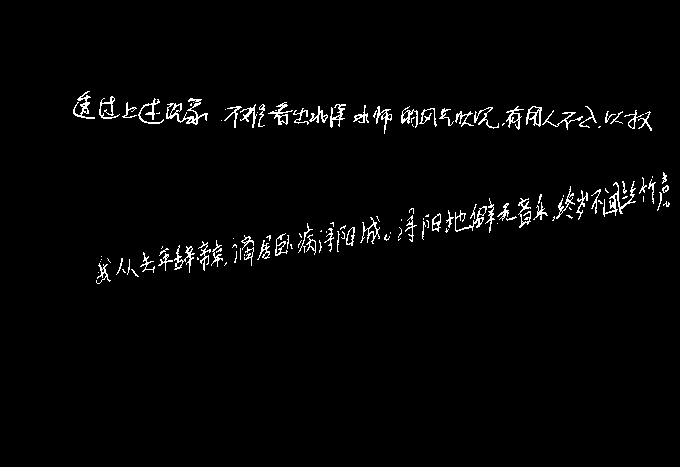 透过上述现象,不难看出北洋水师的风气状况,有用人不公,以权
我从去年辞帝京,谪居卧病浔阳城。浔阳地僻无音乐,终岁不闻丝竹声